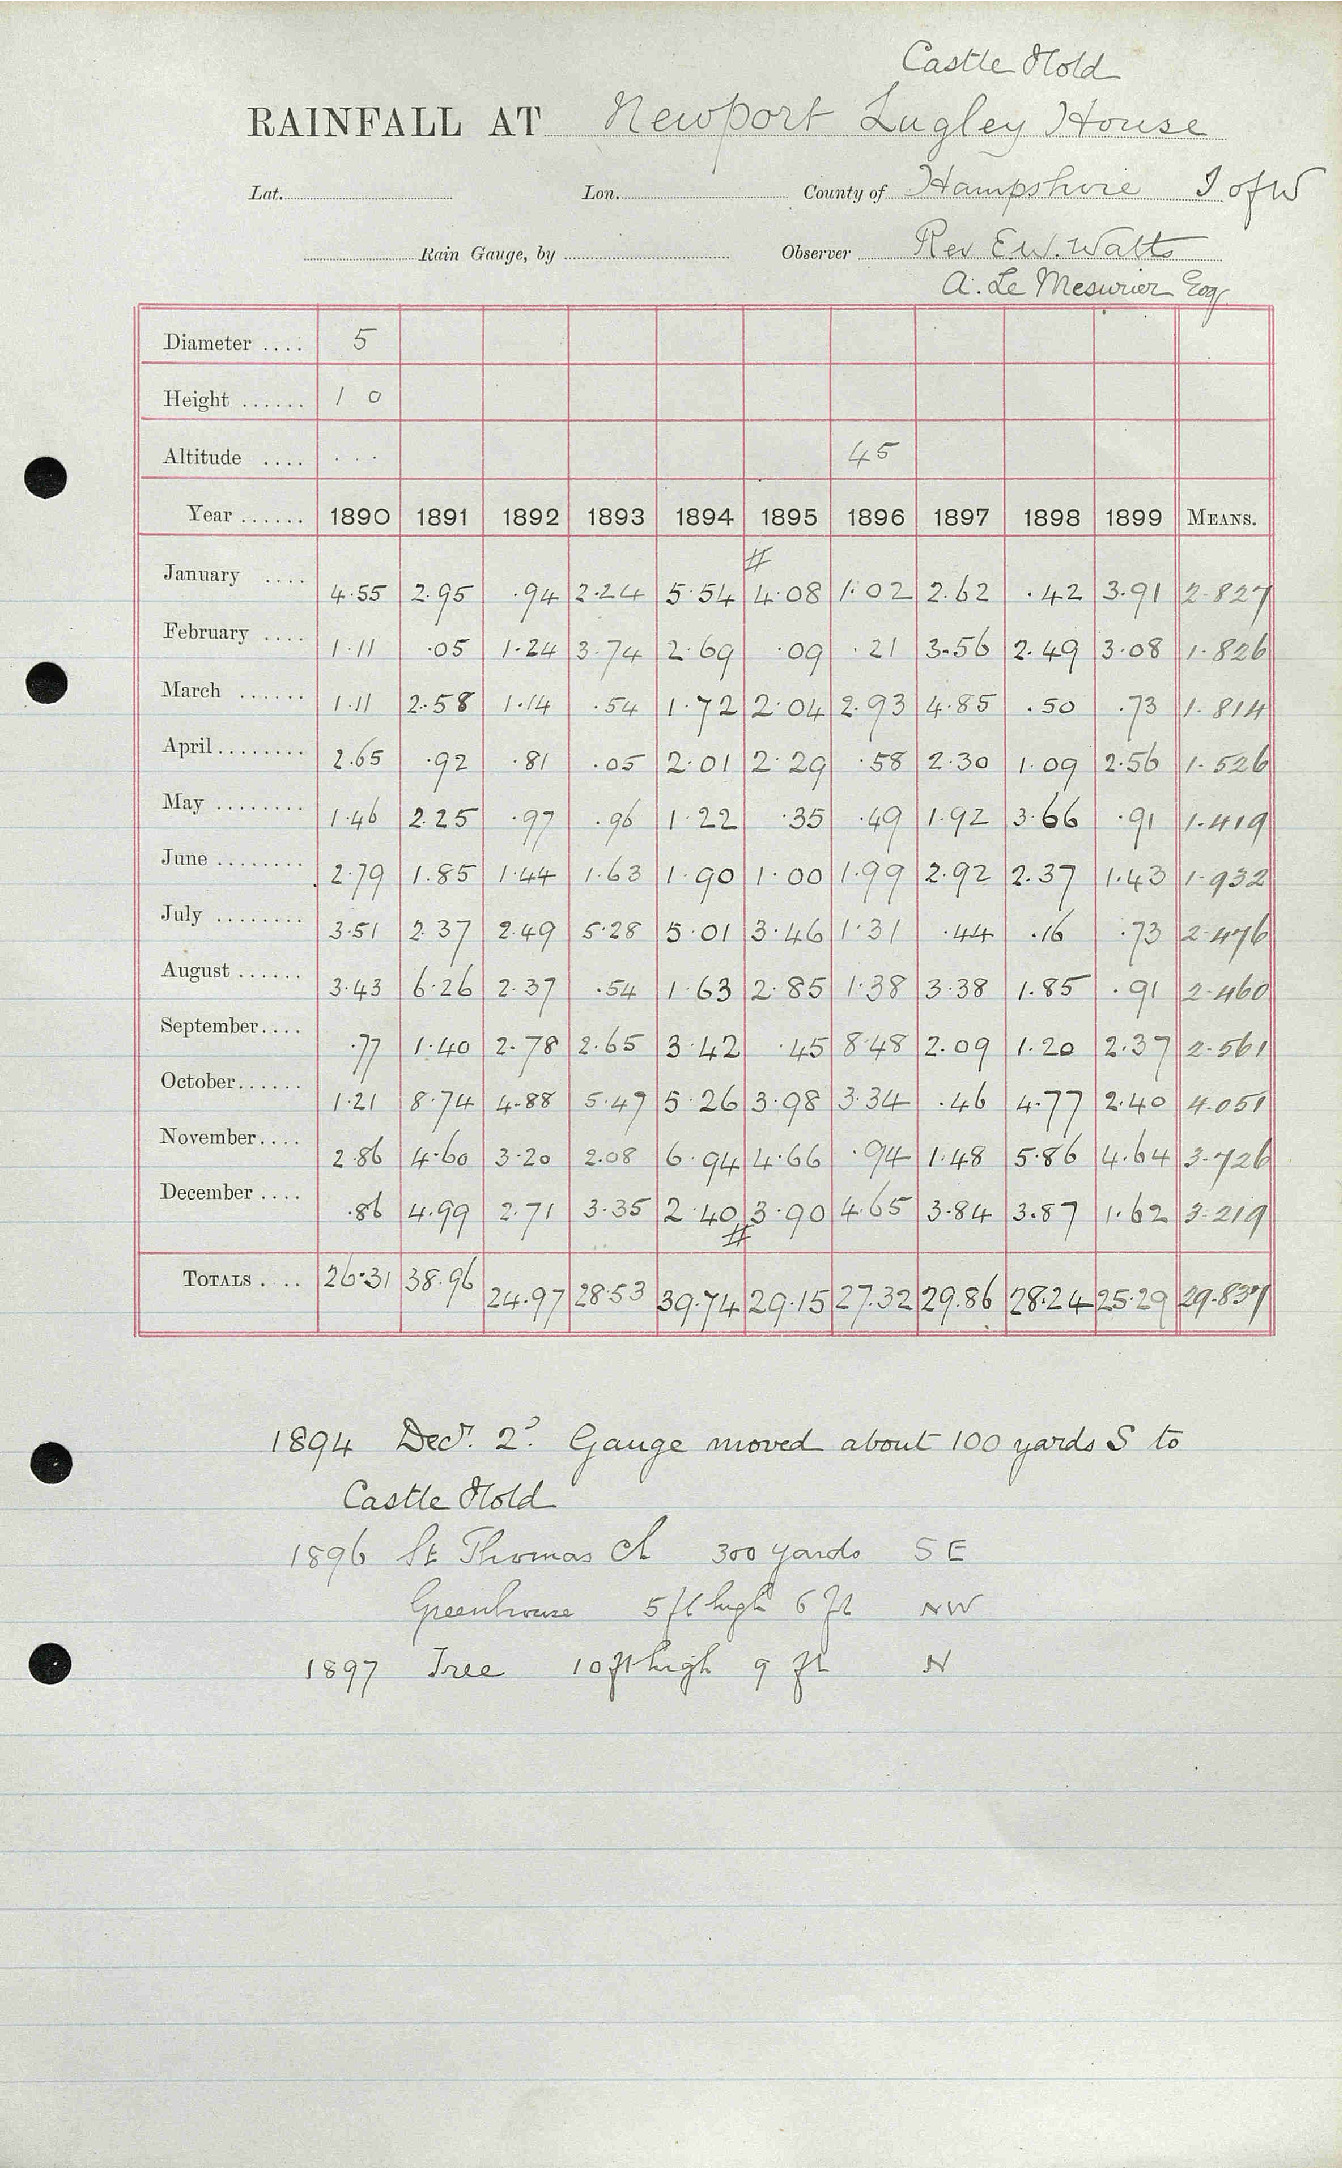 Castle Hold
RAINFALL AT Newport Lugley House
Lat. Lon. County of Hampshire I of W
Rain Gauge, by Observer Rev E.W. Watts
A. Le Mesurier Esq
Diameter .... 5
Height ...... 1 0
Altitude .... ... 45
Year ...... 1890 1891 1892 1893 1894 1895 1896 1897 1898 1899 MEANS.
#
January .... 4.55 2.95 .94 2.24 5.54 4.08 1.02 2.62 .42 3.91 2.827
February .... 1.11 .05 1.24 3.74 2.69 .09 .21 3.56 2.49 3.08 1.826
March ...... 1.11 2.58 1.14 .54 1.72 2.04 2.93 4.85 .50 .73 1.814
April ........ 2.65 .92 .81 .05 2.01 2.29 .58 2.30 1.09 2.56 1.526
May ........ 1.46 2.25 .97 .96 1.22 .35 .49 1.92 3.66 .91 1.419
June ........ 2.79 1.85 1.44 1.63 1.90 1.00 1.99 2.92 2.37 1.43 1.932
July ........ 3.51 2.37 2.49 5.28 5.01 3.46 1.31 .44 .16 .73 2.476
August ...... 3.43 6.26 2.37 .54 1.63 2.85 1.38 3.38 1.85 .91 2.460
September.... .77 1.40 2.78 2.65 3.42 .45 8.48 2.09 1.20 2.37 2.561
October...... 1.21 8.74 4.88 5.47 5.26 3.98 3.34 .46 4.77 2.40 4.051
November.... 2.86 4.60 3.20 2.08 6.94 4.66 .94 1.48 5.86 4.64 3.726
December .... .86 4.99 2.71 3.35 2.40 3.90 4.65 3.84 3.87 1.62 3.219
#
TOTALS .... 26.31 38.96 24.97 28.53 39.74 29.15 27.32 29.86 28.24 25.29 29.837
1894 Decr. 2d. Gauge moved about 100 yards S to
Castle Hold
1896 St Thomas Ch 300 yards SE
Greenhouse 5 ft high 6 ft NW
1897 Tree 10 ft high 9 ft N